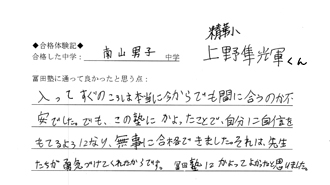 精華小
◆合格体験記◆
合格した中学：南山男子 中学
上野隼輝くん
冨田塾に通って良かったと思う点：
入ってすぐのころは本当に今からでも間に合うのか不
安でした。でも、この塾にかよったことで、自分に自信を
もてるようになり、無事に合格できました。それは、先生
たちが勇気づけてくれたからです。冨田塾にかよってよかったと思いました。